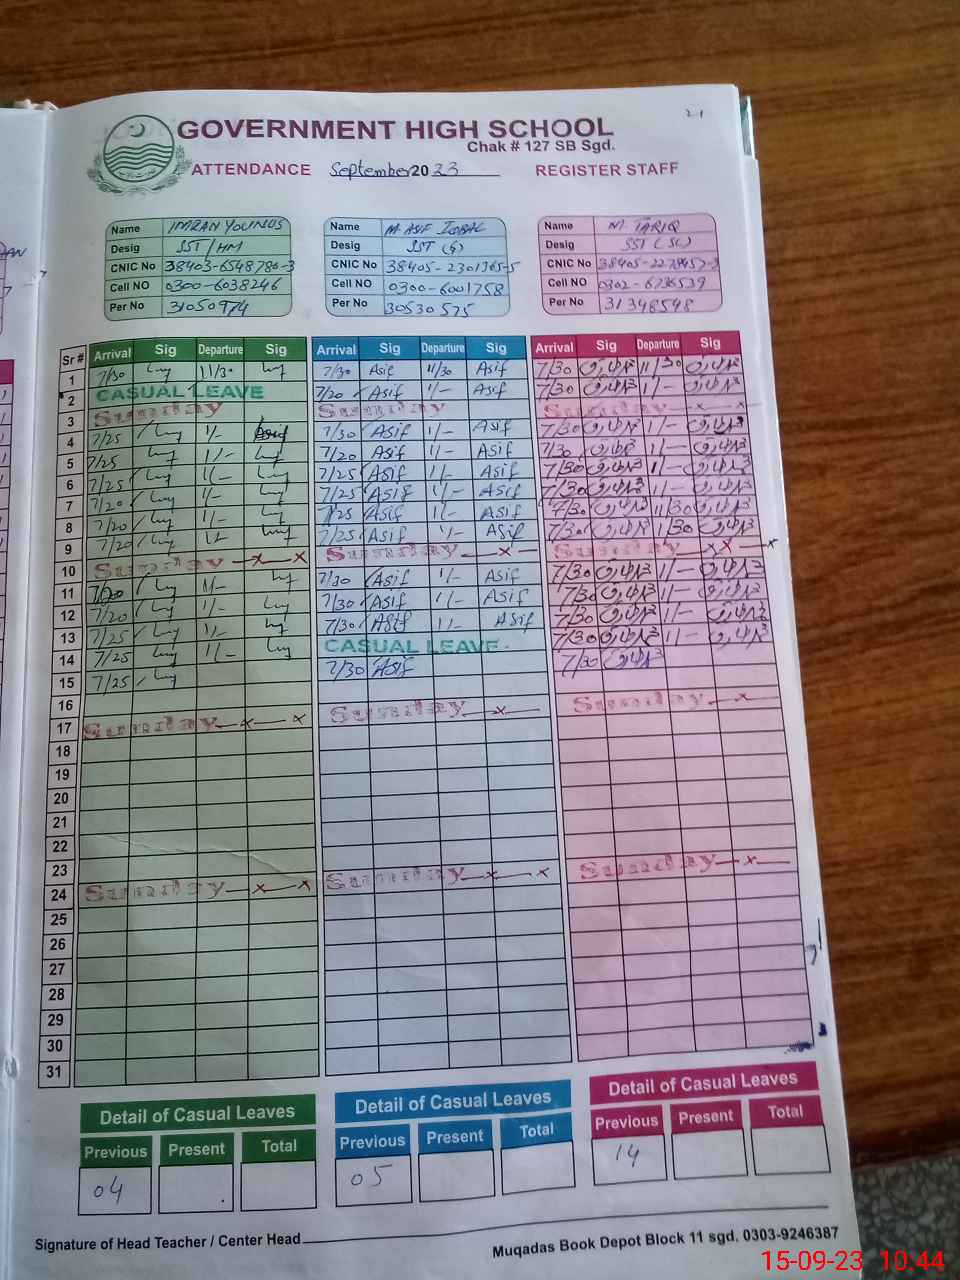 21
GOVERNMENT HIGH SCHOOL
Chak # 127 SB Sgd.
ATTENDANCE September 2023 REGISTER STAFF
Name IMRAN YOUNUS Name M ASIF IQBAL Name M TARIQ
Desig SST/HM Desig SST (G) Desig SST (SC)
CNIC No 38403-6548786-3 CNIC No 38405-2301365-5 CNIC No
Cell NO 0300-6038246 Cell NO 0300-6001758 Cell NO 0302-6736539
Per No 31050974 Per No 30530575 Per No 31348548
Sr # Arrival Sig Departure Sig Arrival Sig Departure Sig Arrival Sig Departure Sig
1 7/30 11/30 7/30 Asif 11/30 Asif 7/30 11/30
2 CASUAL LEAVE 7/20 Asif 1/- Asif 7/30 1/-
3 Sunday Sunday Sunday
4 7/25 1/- 7/30 Asif 1/- Asif 7/30 1/-
5 7/25 1/- 7/20 Asif 1/- Asif 7/30 1/-
6 7/25 1/- 7/25 Asif 1/- Asif 7/30 1/-
7 7/20 1/- 7/25 Asif 1/- Asif 7/30 1/-
8 7/20 1/- 7/25 Asif 1/- Asif 7/30 11/30
9 7/20 1/- 7/25 Asif 1/- Asif 7/30 11/30
10 Sunday x x Sunday x Sunday x x x
11 7/20 1/- 7/30 Asif 1/- Asif 7/30 1/-
12 7/20 1/- 7/30 Asif 1/- Asif 7/30 1/-
13 7/25 1/- 7/30 Asif 1/- Asif 7/30 1/-
14 7/25 1/- CASUAL LEAVE 7/30 1/-
15 7/25 7/30 Asif 7/30
16
17 Sunday x x Sunday x Sunday x
18
19
20
21
22
23
24 Sunday x x Sunday x x Sunday x
25
26
27
28
29
30
31
Detail of Casual Leaves Detail of Casual Leaves Detail of Casual Leaves
Previous Present Total Previous Present Total Previous Present Total
04 05 14
Signature of Head Teacher / Center Head
Muqadas Book Depot Block 11 sgd. 0303-9246387
15-09-23 10:44